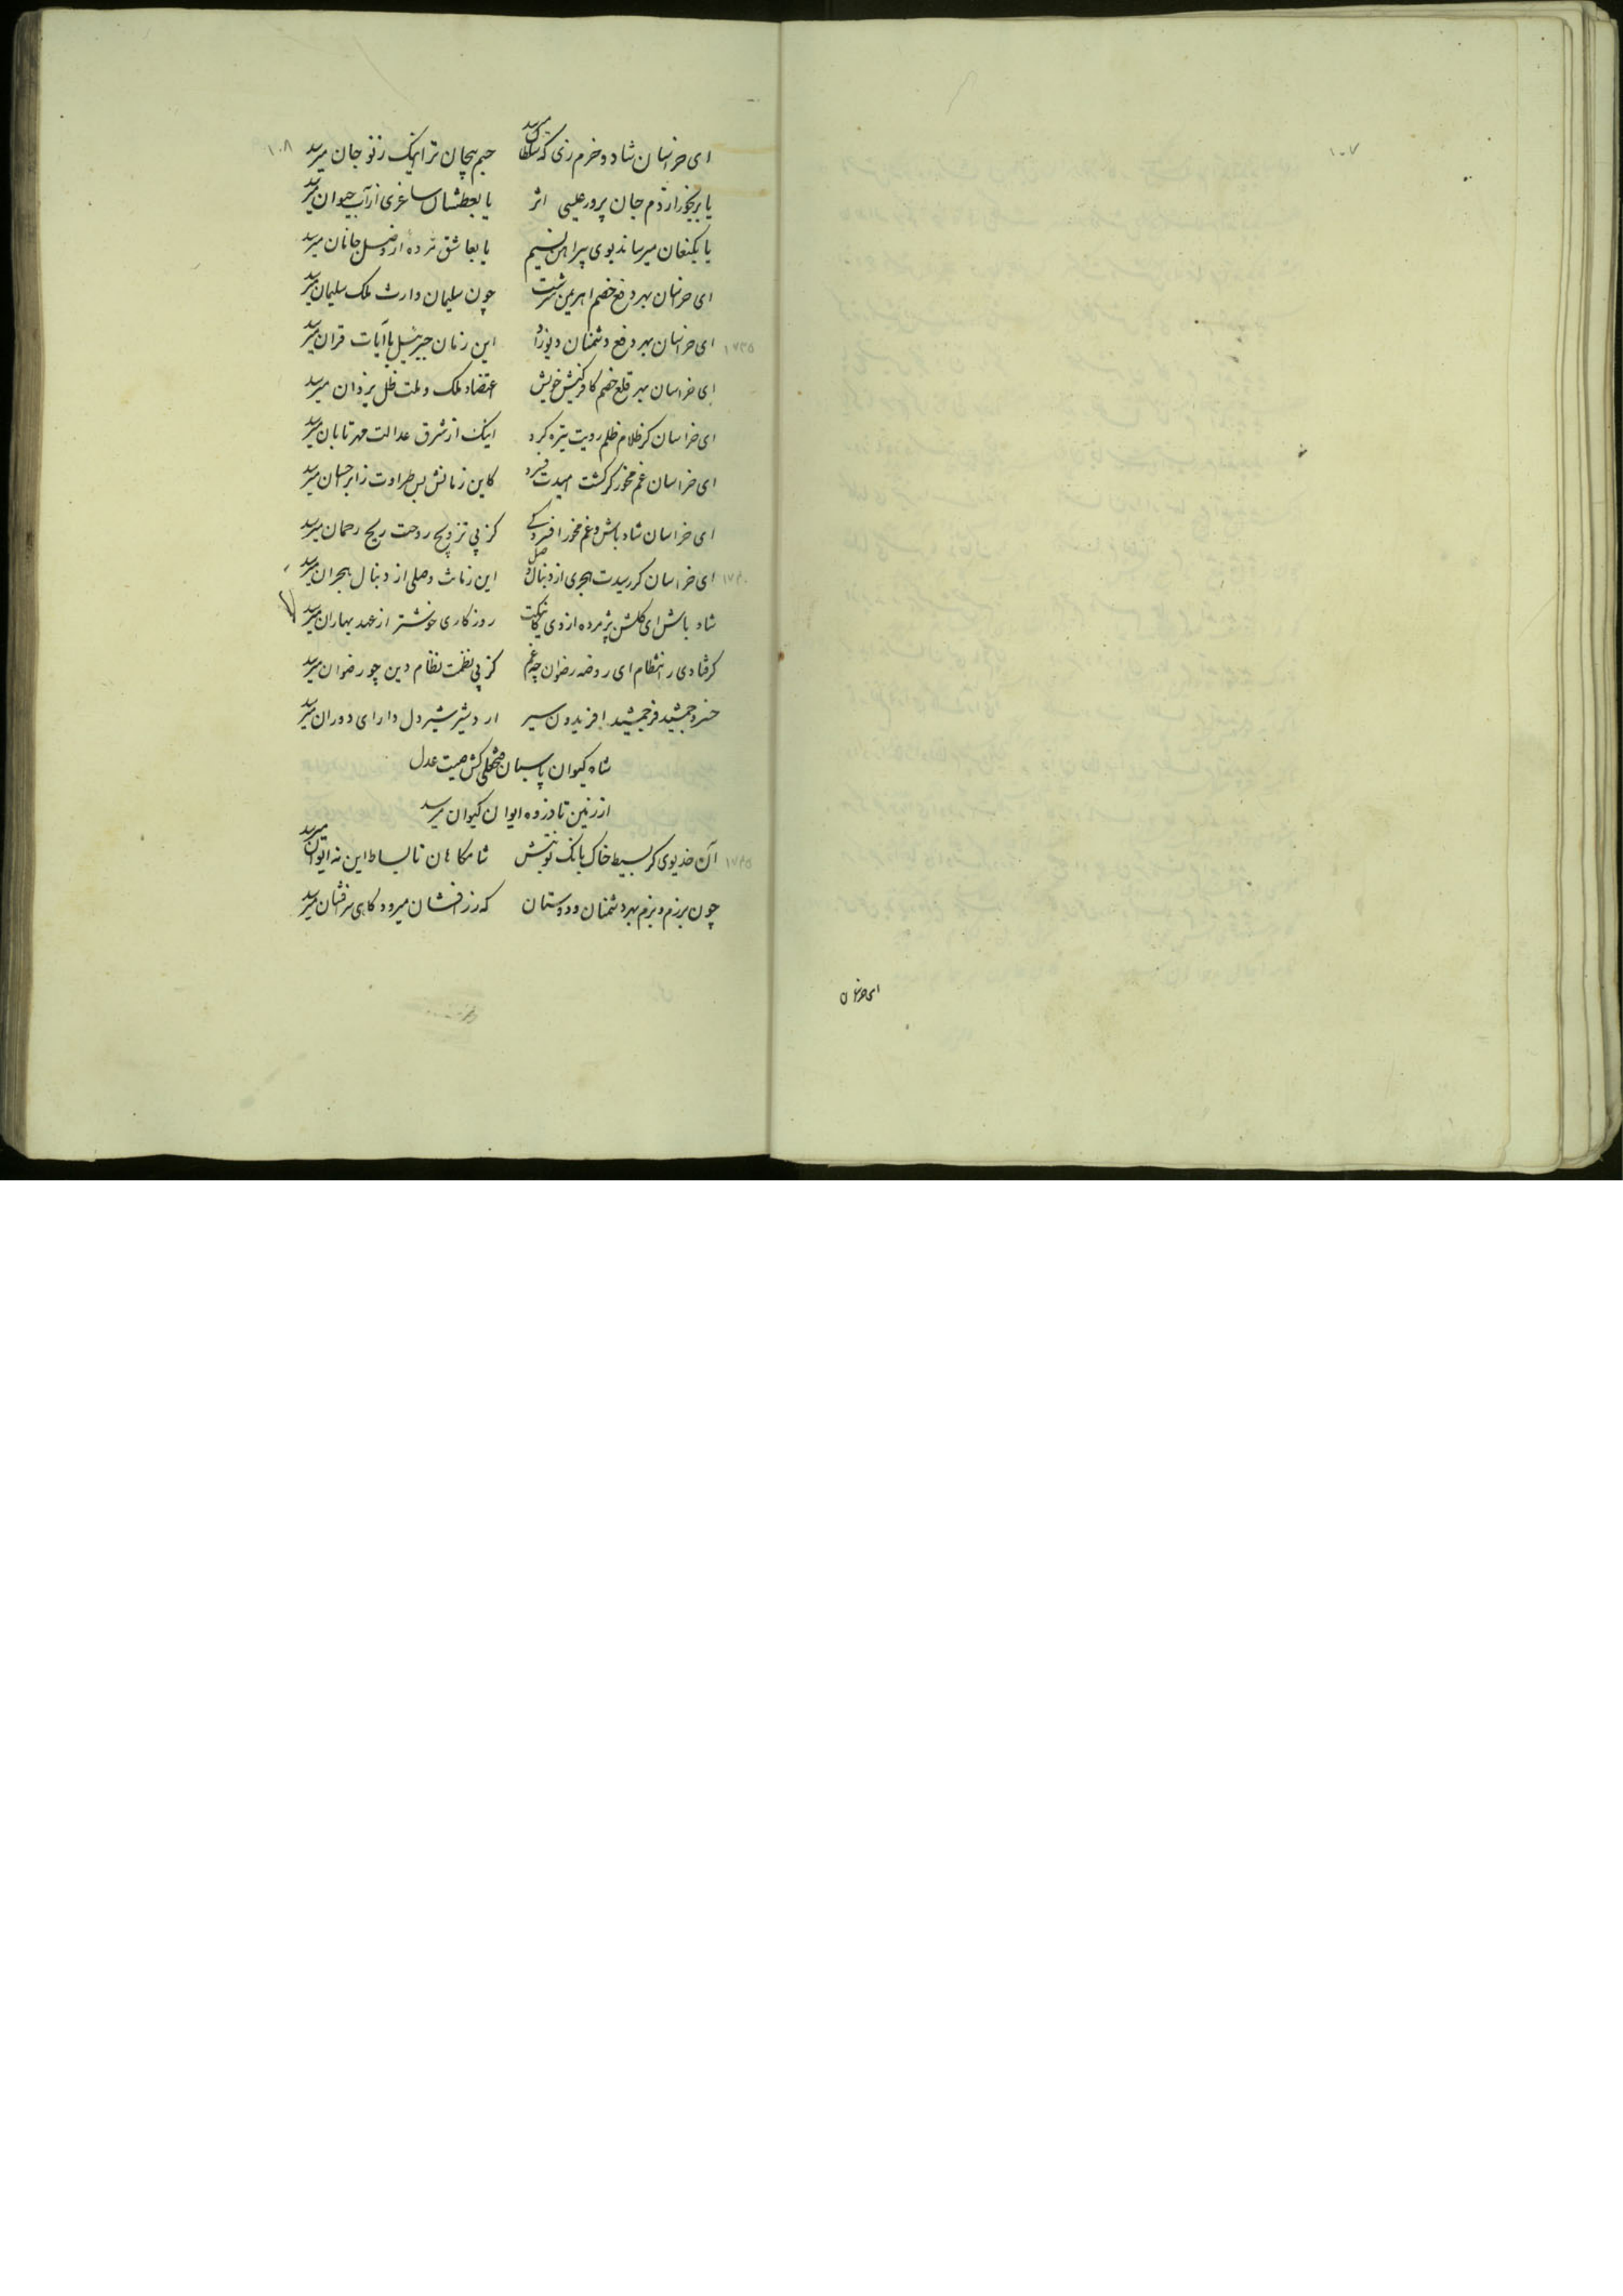 ۱۰۷
ای خراسان
۱۰۸
ای خراسان شاد و خرم زی که سلطان میرسد جسم بیجان ترا اینک ز نو جان میرسد
یا برنجور از دم جان پرور عیسی اثر یا بعطشان ساغری از آب حیوان میرسد
یا بکنعان میرساند بوی پیراهن نسیم یا بعاشق مژده از وصل جانان میرسد
ای خراسان بهر دفع خصم اهریمن سرشت چون سلیمان وارث ملک سلیمان میرسد
۱۷۳۵ ای خراسان بهر دفع دشمنان دیوزاد این زمان جبرئیل با آیات قران میرسد
ای خراسان بهر قلع خصم کافرکیش خویش اعتضاد ملک و ملت ظل یزدان میرسد
ای خراسان کز ظلام ظلم رویت تیره کرد اینک از شرق عدالت مهر تابان میرسد
ای خراسان غم مخور گر کشت امیدت فسرد کاین زمانش بس طراوت ز ابر احسان میرسد
ای خراسان شاد باش و غم مخور ز افسردگی کز پی ترویح روحت ریح رحمان میرسد
۱۷۴۰ ای خراسان گر رسیدت هجری از دنبال وصل این زمانت وصلی از دنبال هجران میرسد
شاد باش ای گلشن پژمرده از دی کاینکت روزگاری خوشتر از عهد بهاران میرسد
گر فتادی ز انتظام ای روضه رضوان چه غم کز پی نظمت نظام دین چو رضوان میرسد
خسرو جمشید فر جمشید افریدون سیر اردشیر شیردل دارای دوران میرسد
شاه کیوان پاسبان فتحعلی کش صیت عدل
از زمین تا ذروه ایوان کیوان میرسد
۱۷۴۵ آن خدیوی کز بسیط خاک بانک نوبتش شامگاهان تا بساط این نه ایوان میرسد
چون برزم و بزم بهر دشمنان و دوستان که زرافشان میرود گاهی سرفشان میرسد